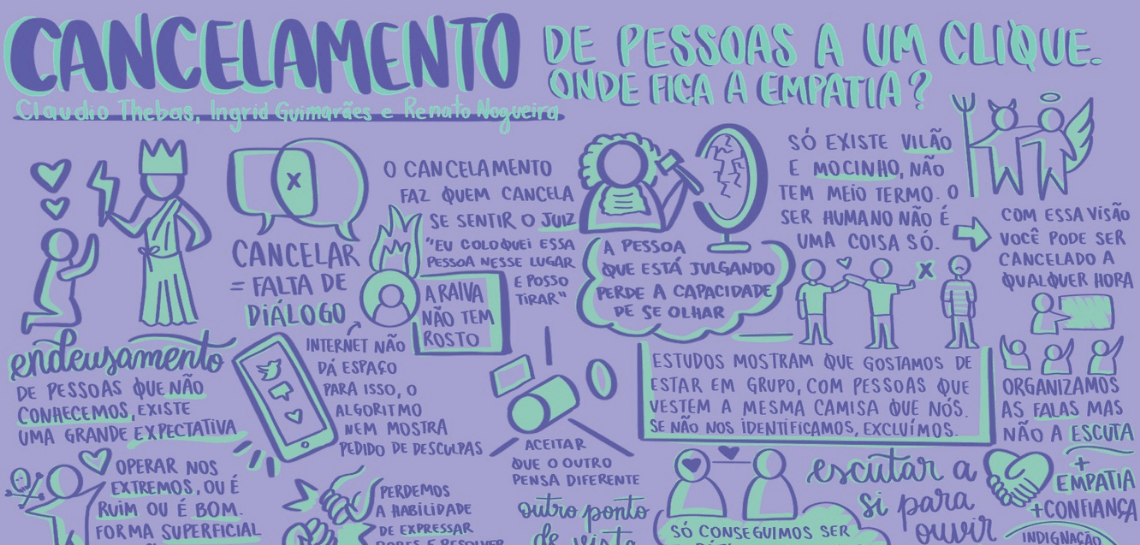 CANCELAMENTO
DE PESSOAS A UM CLIQUE.
ONDE FICA A EMPATIA?
Claudio Thebas, Ingrid Guimarães e Renato Nogueira
X
endeusamento
DE PESSOAS QUE NÃO
CONHECEMOS, EXISTE
UMA GRANDE EXPECTATIVA
CANCELAR
= FALTA DE
DIÁLOGO
O CANCELAMENTO
FAZ QUEM CANCELA
SE SENTIR O JUIZ
"EU COLOQUEI ESSA
PESSOA NESSE LUGAR
E POSSO
TIRAR"
A RAIVA
NÃO TEM
ROSTO
INTERNET NÃO
DÁ ESPAÇO
PARA ISSO, O
ALGORITMO
NEM MOSTRA
PEDIDO DE DESCULPAS
A PESSOA
QUE ESTÁ JULGANDO
PERDE A CAPACIDADE
DE SE OLHAR
SÓ EXISTE VILÃO
E MOCINHO, NÃO
TEM MEIO TERMO. O
SER HUMANO NÃO É
UMA COISA SÓ.
COM ESSA VISÃO
VOCÊ PODE SER
CANCELADO A
QUALQUER HORA
X
ESTUDOS MOSTRAM QUE GOSTAMOS DE
ESTAR EM GRUPO, COM PESSOAS QUE
VESTEM A MESMA CAMISA QUE NÓS.
SE NÃO NOS IDENTIFICAMOS, EXCLUÍMOS.
ORGANIZAMOS
AS FALAS MAS
NÃO A ESCUTA
+
EMPATIA
+CONFIANÇA
INDIGNAÇÃO
OPERAR NOS
EXTREMOS, OU É
RUIM OU É BOM.
FORMA SUPERFICIAL
PERDEMOS
A HABILIDADE
DE EXPRESSAR
ACEITAR
QUE O OUTRO
PENSA DIFERENTE
outro ponto
de vista
SÓ CONSEGUIMOS SER
escutar a
si para
ouvir